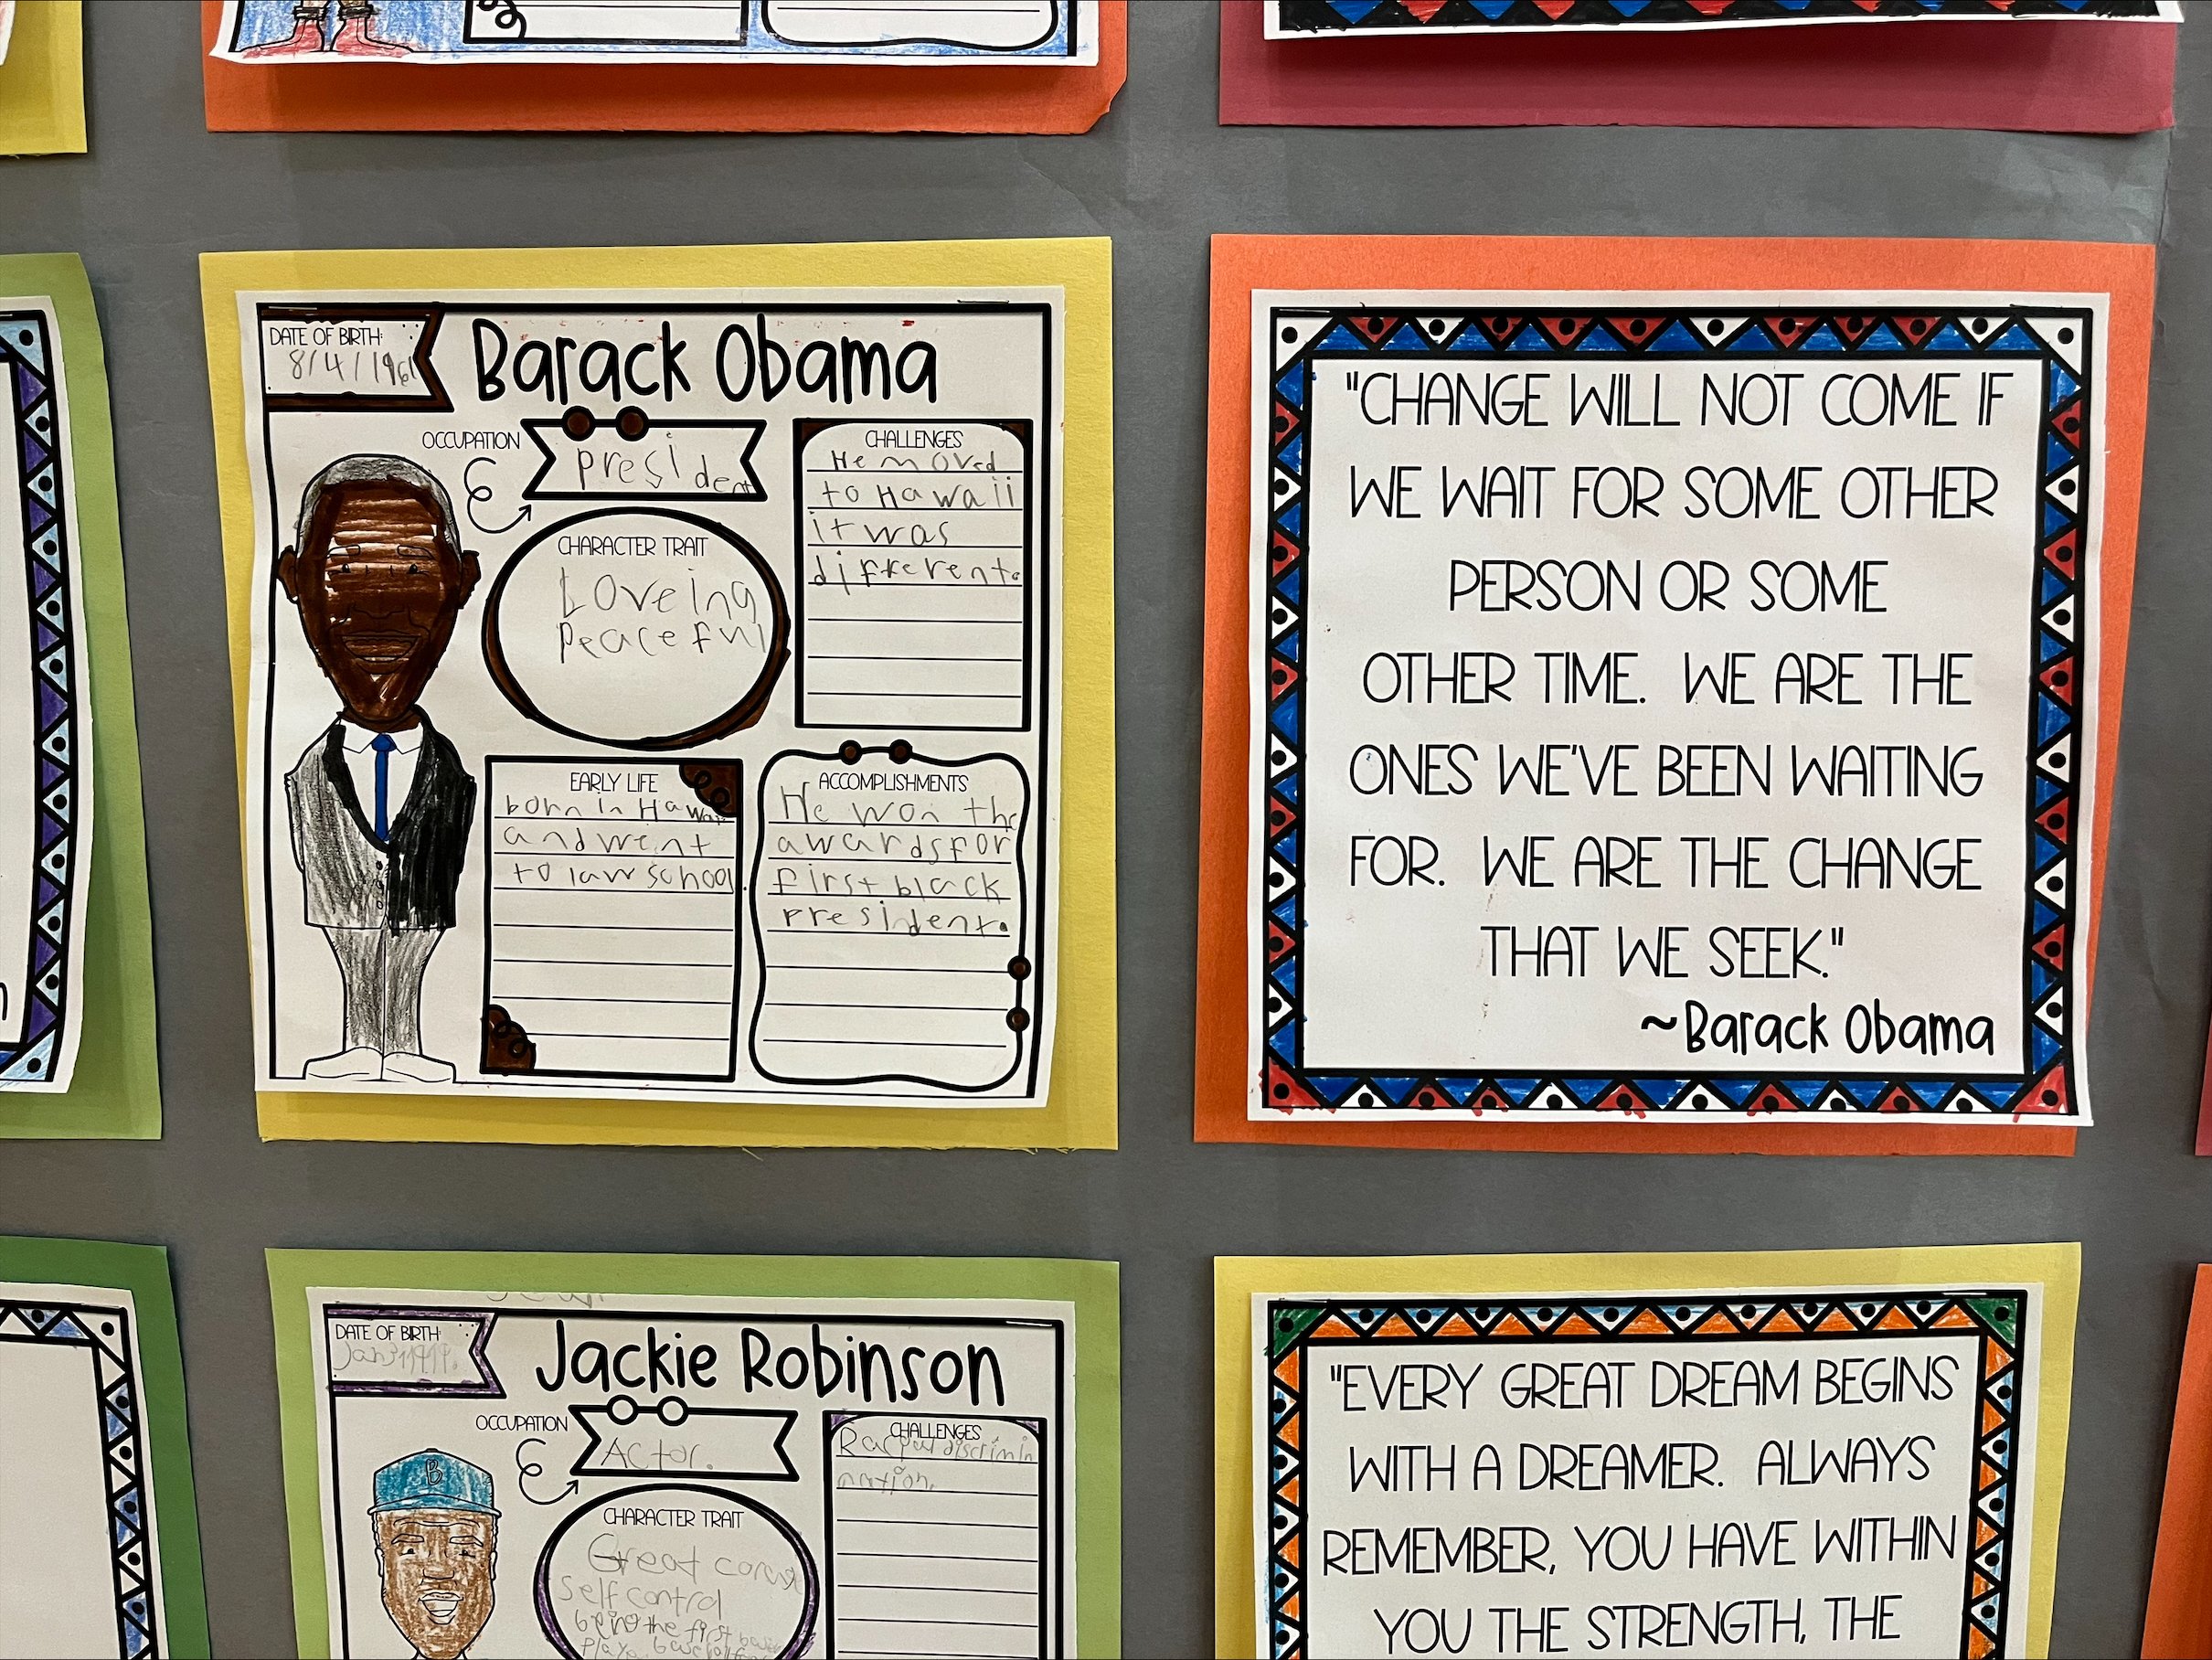 DATE OF BIRTH:
8/4/1961
Barack Obama
OCCUPATION
president
CHARACTER TRAIT
Loveing
Peaceful
CHALLENGES
He moved
to Hawaii
it was
different.
EARLY LIFE
born in Hawaii
and went
to law school.
ACCOMPLISHMENTS
He won the
awards for
first black
president.
"CHANGE WILL NOT COME IF
WE WAIT FOR SOME OTHER
PERSON OR SOME
OTHER TIME. WE ARE THE
ONES WE'VE BEEN WAITING
FOR. WE ARE THE CHANGE
THAT WE SEEK."
~Barack Obama
DATE OF BIRTH:
Jackie Robinson
OCCUPATION
Actor.
B
CHARACTER TRAIT
Great
self control
being the first
CHALLENGES
"EVERY GREAT DREAM BEGINS
WITH A DREAMER. ALWAYS
REMEMBER, YOU HAVE WITHIN
YOU THE STRENGTH, THE